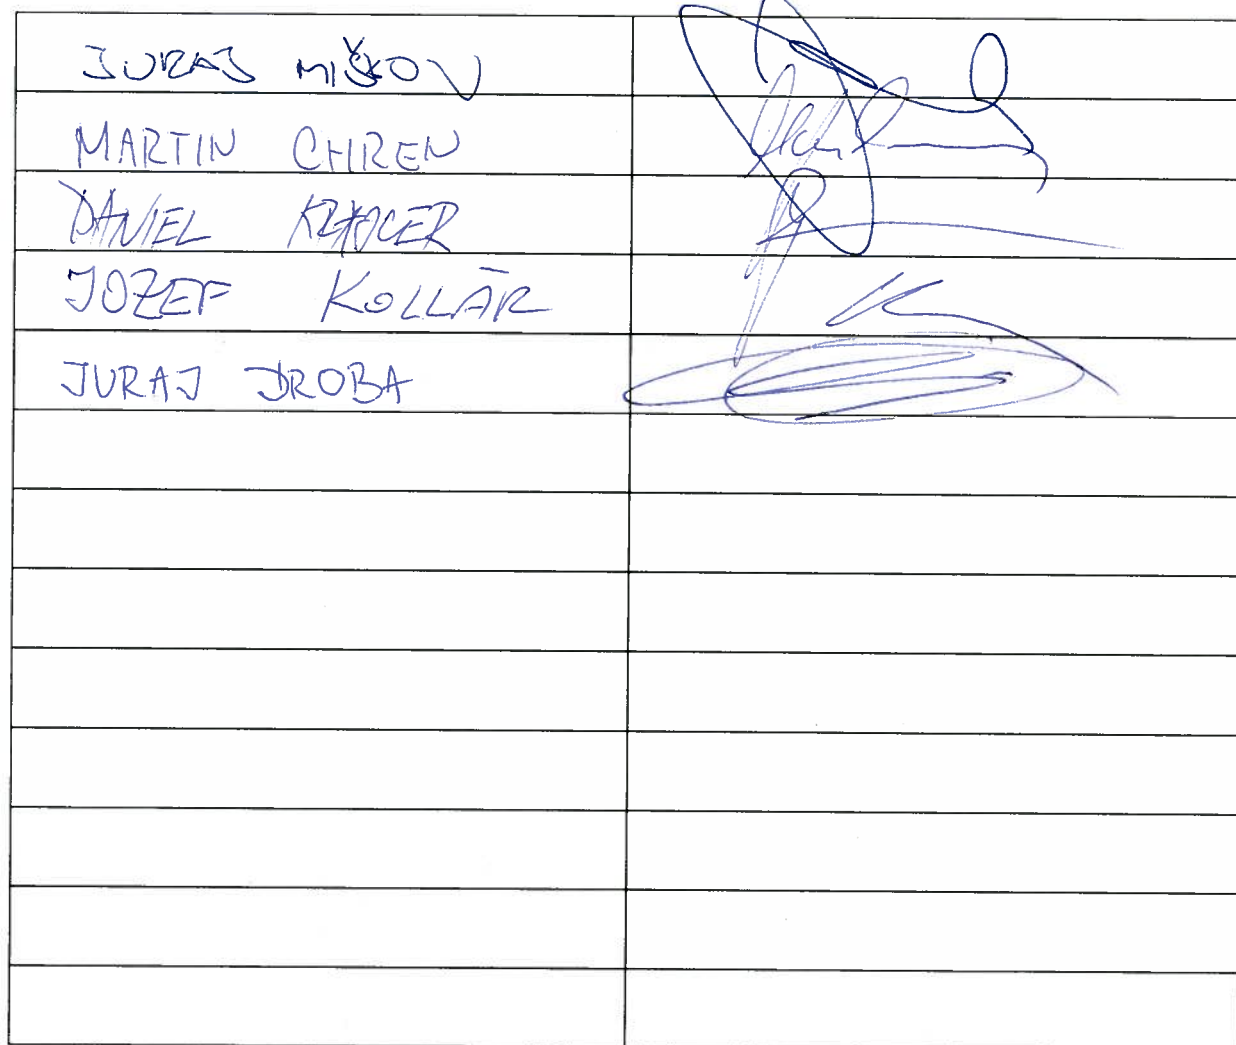 JURAJ MIŠKOV
MARTIN CHREN
DANIEL KRAJCER
JOZEF KOLLÁR
JURAJ DROBA